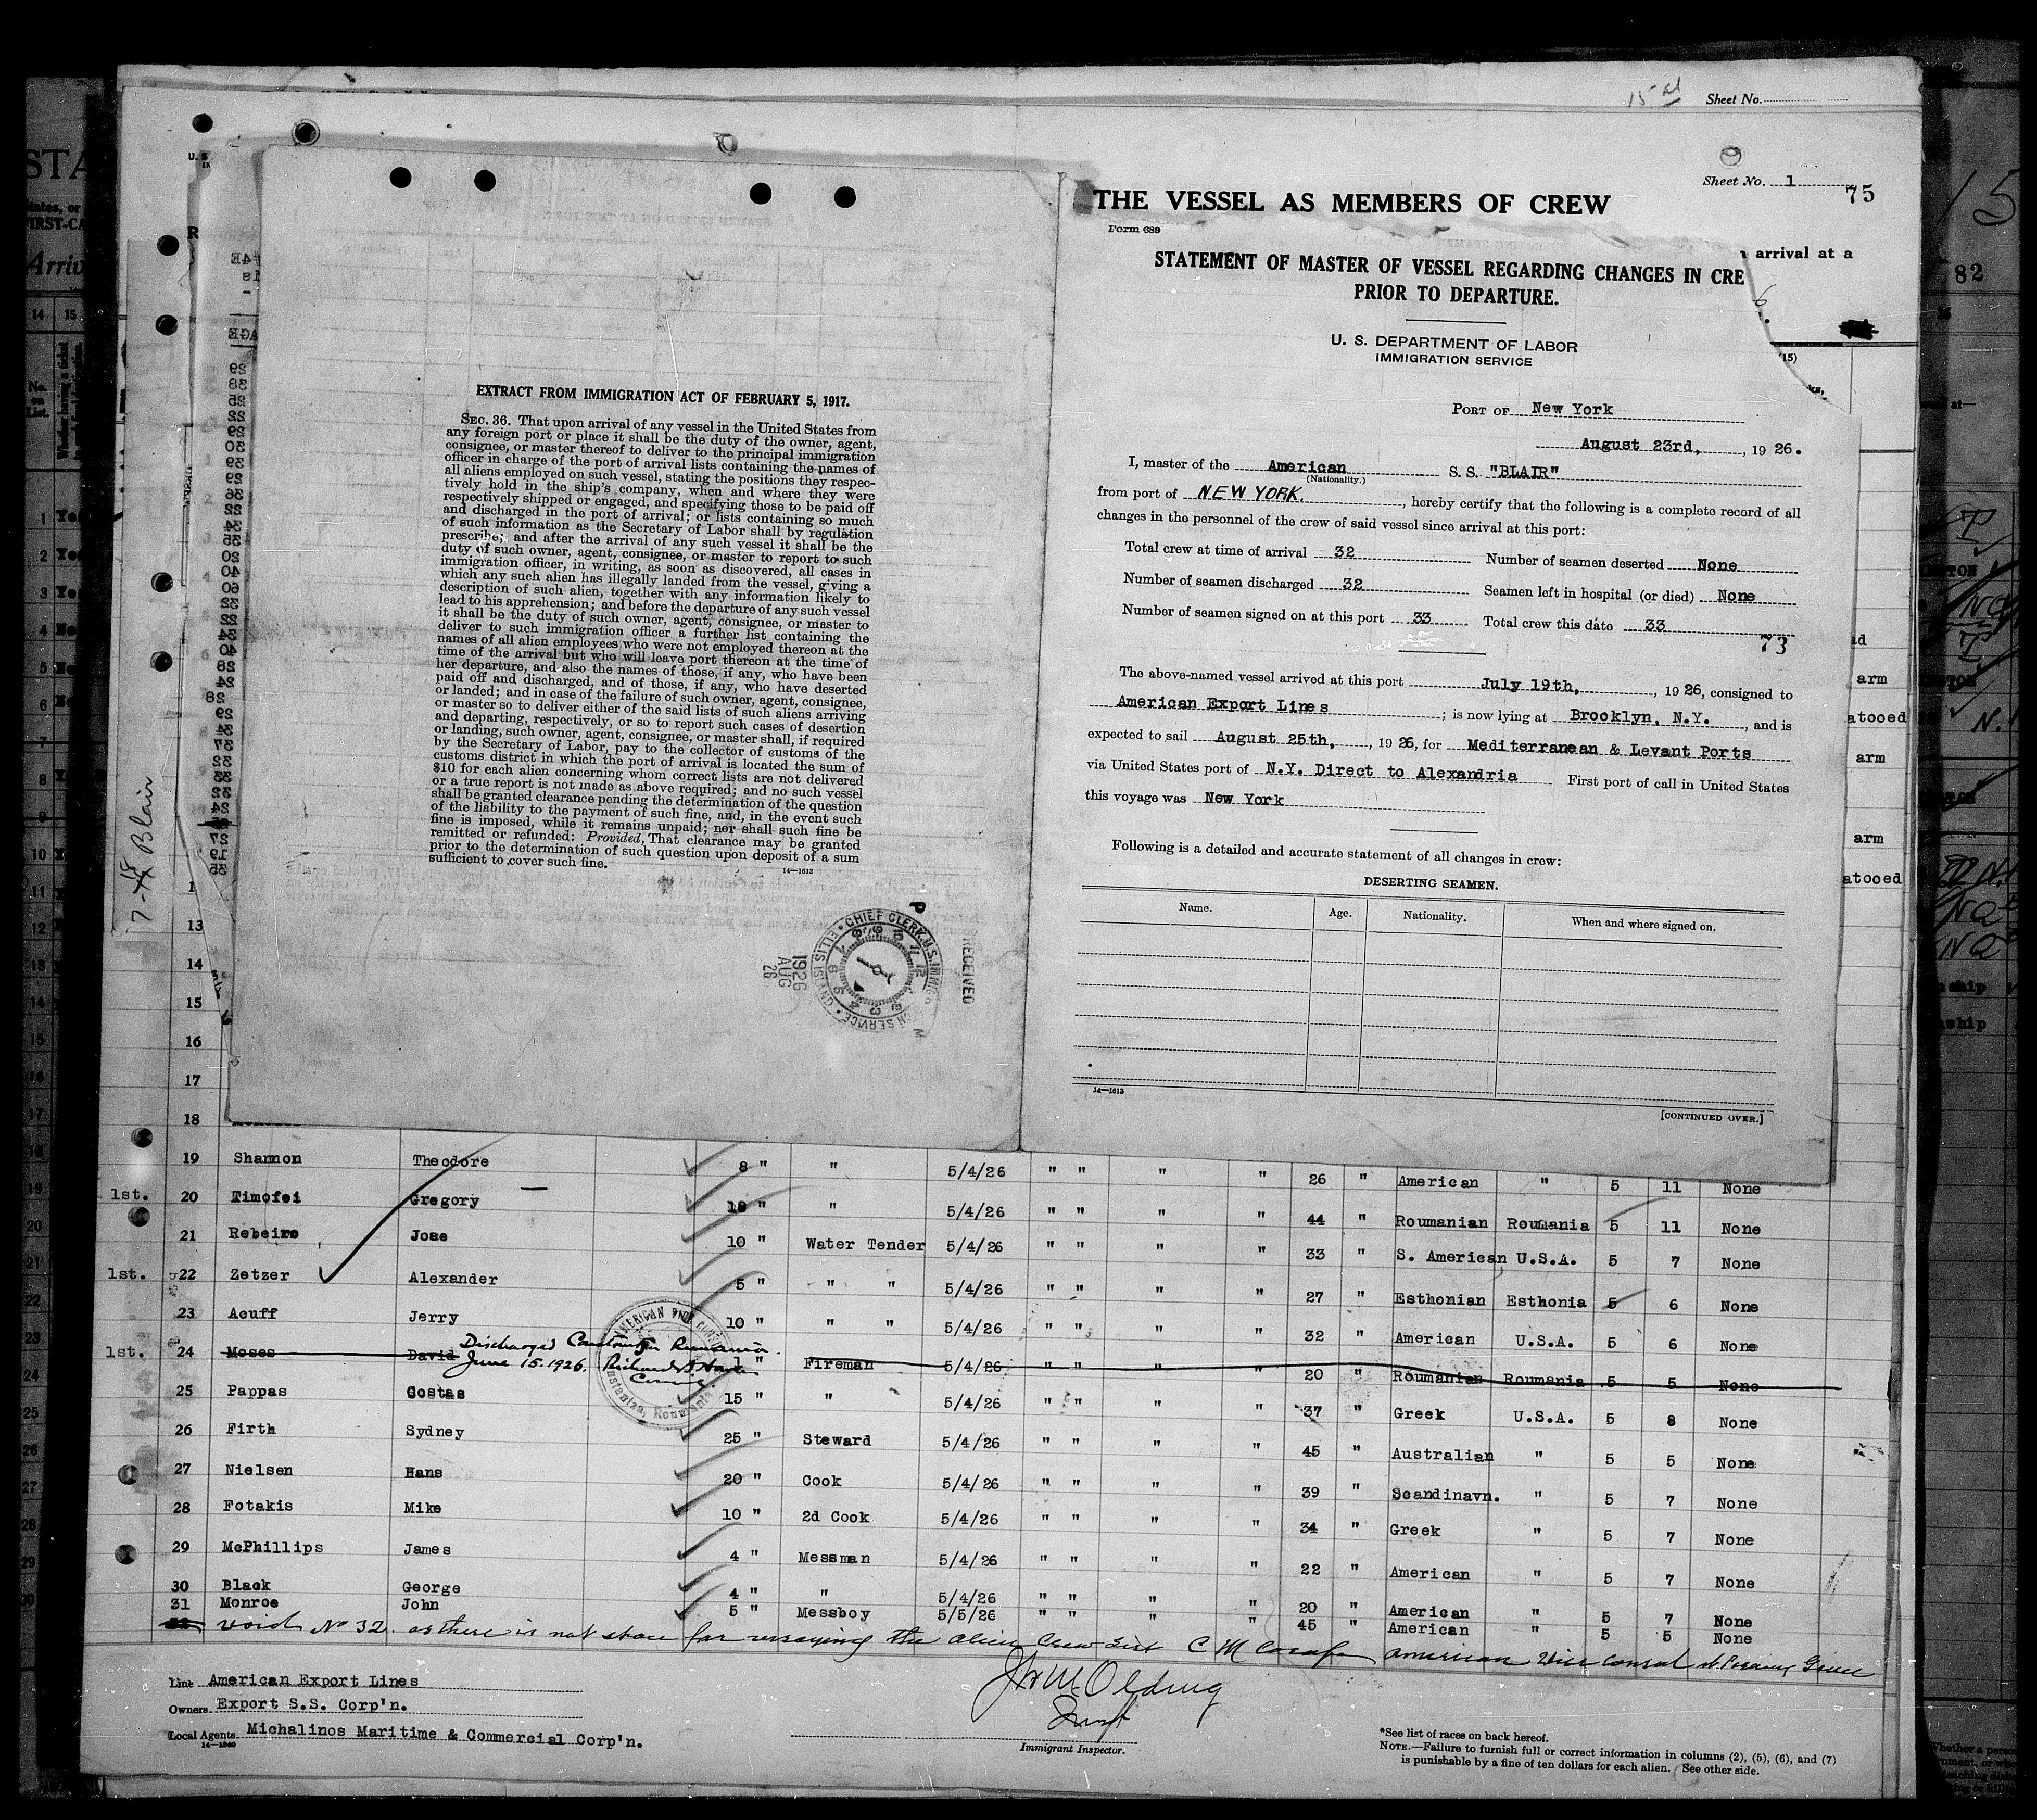 15
Sheet No.
Sheet No. 1
75
THE VESSEL AS MEMBERS OF CREW
Form 689
arrival at a
STATEMENT OF MASTER OF VESSEL REGARDING CHANGES IN CRE
PRIOR TO DEPARTURE.
U. S. DEPARTMENT OF LABOR
IMMIGRATION SERVICE
(15)
PORT OF New York
August 23rd, , 19 26.
I, master of the American S. S. "BLAIR"
(Nationality.)
from port of NEW YORK. , hereby certify that the following is a complete record of all
changes in the personnel of the crew of said vessel since arrival at this port:
Total crew at time of arrival 32 Number of seamen deserted None
Number of seamen discharged 32 Seamen left in hospital (or died) None
Number of seamen signed on at this port 33 Total crew this date 33
73
The above-named vessel arrived at this port July 19th, , 19 26, consigned to
American Export Lines ; is now lying at Brooklyn, N.Y. , and is
expected to sail August 25th, , 19 26, for Mediterranean & Levant Ports
via United States port of N.Y. Direct to Alexandria First port of call in United States
this voyage was New York
Following is a detailed and accurate statement of all changes in crew:
DESERTING SEAMEN.
Name. Age. Nationality. When and where signed on.
14—1613
[CONTINUED OVER.]
EXTRACT FROM IMMIGRATION ACT OF FEBRUARY 5, 1917.
SEC. 36. That upon arrival of any vessel in the United States from
any foreign port or place it shall be the duty of the owner, agent,
consignee, or master thereof to deliver to the principal immigration
officer in charge of the port of arrival lists containing the names of
all aliens employed on such vessel, stating the positions they respec-
tively hold in the ship's company, when and where they were
respectively shipped or engaged, and specifying those to be paid off
and discharged in the port of arrival; or lists containing so much
of such information as the Secretary of Labor shall by regulation
prescribe; and after the arrival of any such vessel it shall be the
duty of such owner, agent, consignee, or master to report to such
immigration officer, in writing, as soon as discovered, all cases in
which any such alien has illegally landed from the vessel, giving a
description of such alien, together with any information likely to
lead to his apprehension; and before the departure of any such vessel
it shall be the duty of such owner, agent, consignee, or master to
deliver to such immigration officer a further list containing the
names of all alien employees who were not employed thereon at the
time of the arrival but who will leave port thereon at the time of
her departure, and also the names of those, if any, who have been
paid off and discharged, and of those, if any, who have deserted
or landed; and in case of the failure of such owner, agent, consignee,
or master so to deliver either of the said lists of such aliens arriving
and departing, respectively, or so to report such cases of desertion
or landing, such owner, agent, consignee, or master shall, if required
by the Secretary of Labor, pay to the collector of customs of the
customs district in which the port of arrival is located the sum of
$10 for each alien concerning whom correct lists are not delivered
or a true report is not made as above required; and no such vessel
shall be granted clearance pending the determination of the question
of the liability to the payment of such fine, and, in the event such
fine is imposed, while it remains unpaid; nor shall such fine be
remitted or refunded: Provided, That clearance may be granted
prior to the determination of such question upon deposit of a sum
sufficient to cover such fine.
14—1613
RECEIVED
CHIEF CLERK U.S. IMMIGRATION SERVICE ELLIS ISLAND
1926 AUG 26
Blair
13
14
15
16
17
18
19 Shannon Theodore 8 " " 5/4/26 " " " " 26 " American " 5 11 None
1st. 20 Timofei Gregory 18 " " 5/4/26 " " " " 44 " Roumanian Roumania 5 11 None
21 Rebeiro Jose 10 " Water Tender 5/4/26 " " " " 33 " S. American U.S.A. 5 7 None
1st. 22 Zetzer Alexander 5 " " " 5/4/26 " " " " 27 " Esthonian Esthonia 5 6 None
23 Acuff Jerry 10 " " " 5/4/26 " " " " 32 " American U.S.A. 5 6 None
Discharged Constantza Rumania.
1st. 24 Moses David 1 " Fireman 5/4/26 " " " " 20 " Roumanian Roumania 5 5 None
June 15. 1926.
Constantza, Roumania
25 Pappas Costas 15 " " 5/4/26 " " " " 37 " Greek U.S.A. 5 8 None
26 Firth Sydney 25 " Steward 5/4/26 " " " " 45 " Australian " 5 5 None
27 Nielsen Hans 20 " Cook 5/4/26 " " " " 39 " Scandinavn. " 5 7 None
28 Fotakis Mike 10 " 2d Cook 5/4/26 " " " " 34 " Greek " 5 7 None
29 McPhillips James 4 " Messman 5/4/26 " " " " 22 " American " 5 7 None
30 Black George 4 " " 5/4/26 " " " " 20 " American " 5 7 None
31 Monroe John 5 " Messboy 5/5/26 " " " " 45 " American " 5 5 None
32 void No 32. as there is not space for visaying the alien crew list C M American Vice Consul at Piraeus Greece
Line American Export Lines
Owners Export S.S. Corp'n.
Local Agents Michalinos Maritime & Commercial Corp'n.
14—1240
Olding
Immigrant Inspector.
*See list of races on back hereof.
NOTE.—Failure to furnish full or correct information in columns (2), (5), (6), and (7)
is punishable by a fine of ten dollars for each alien. See other side.
82
arm
atooed
arm
arm
atooed